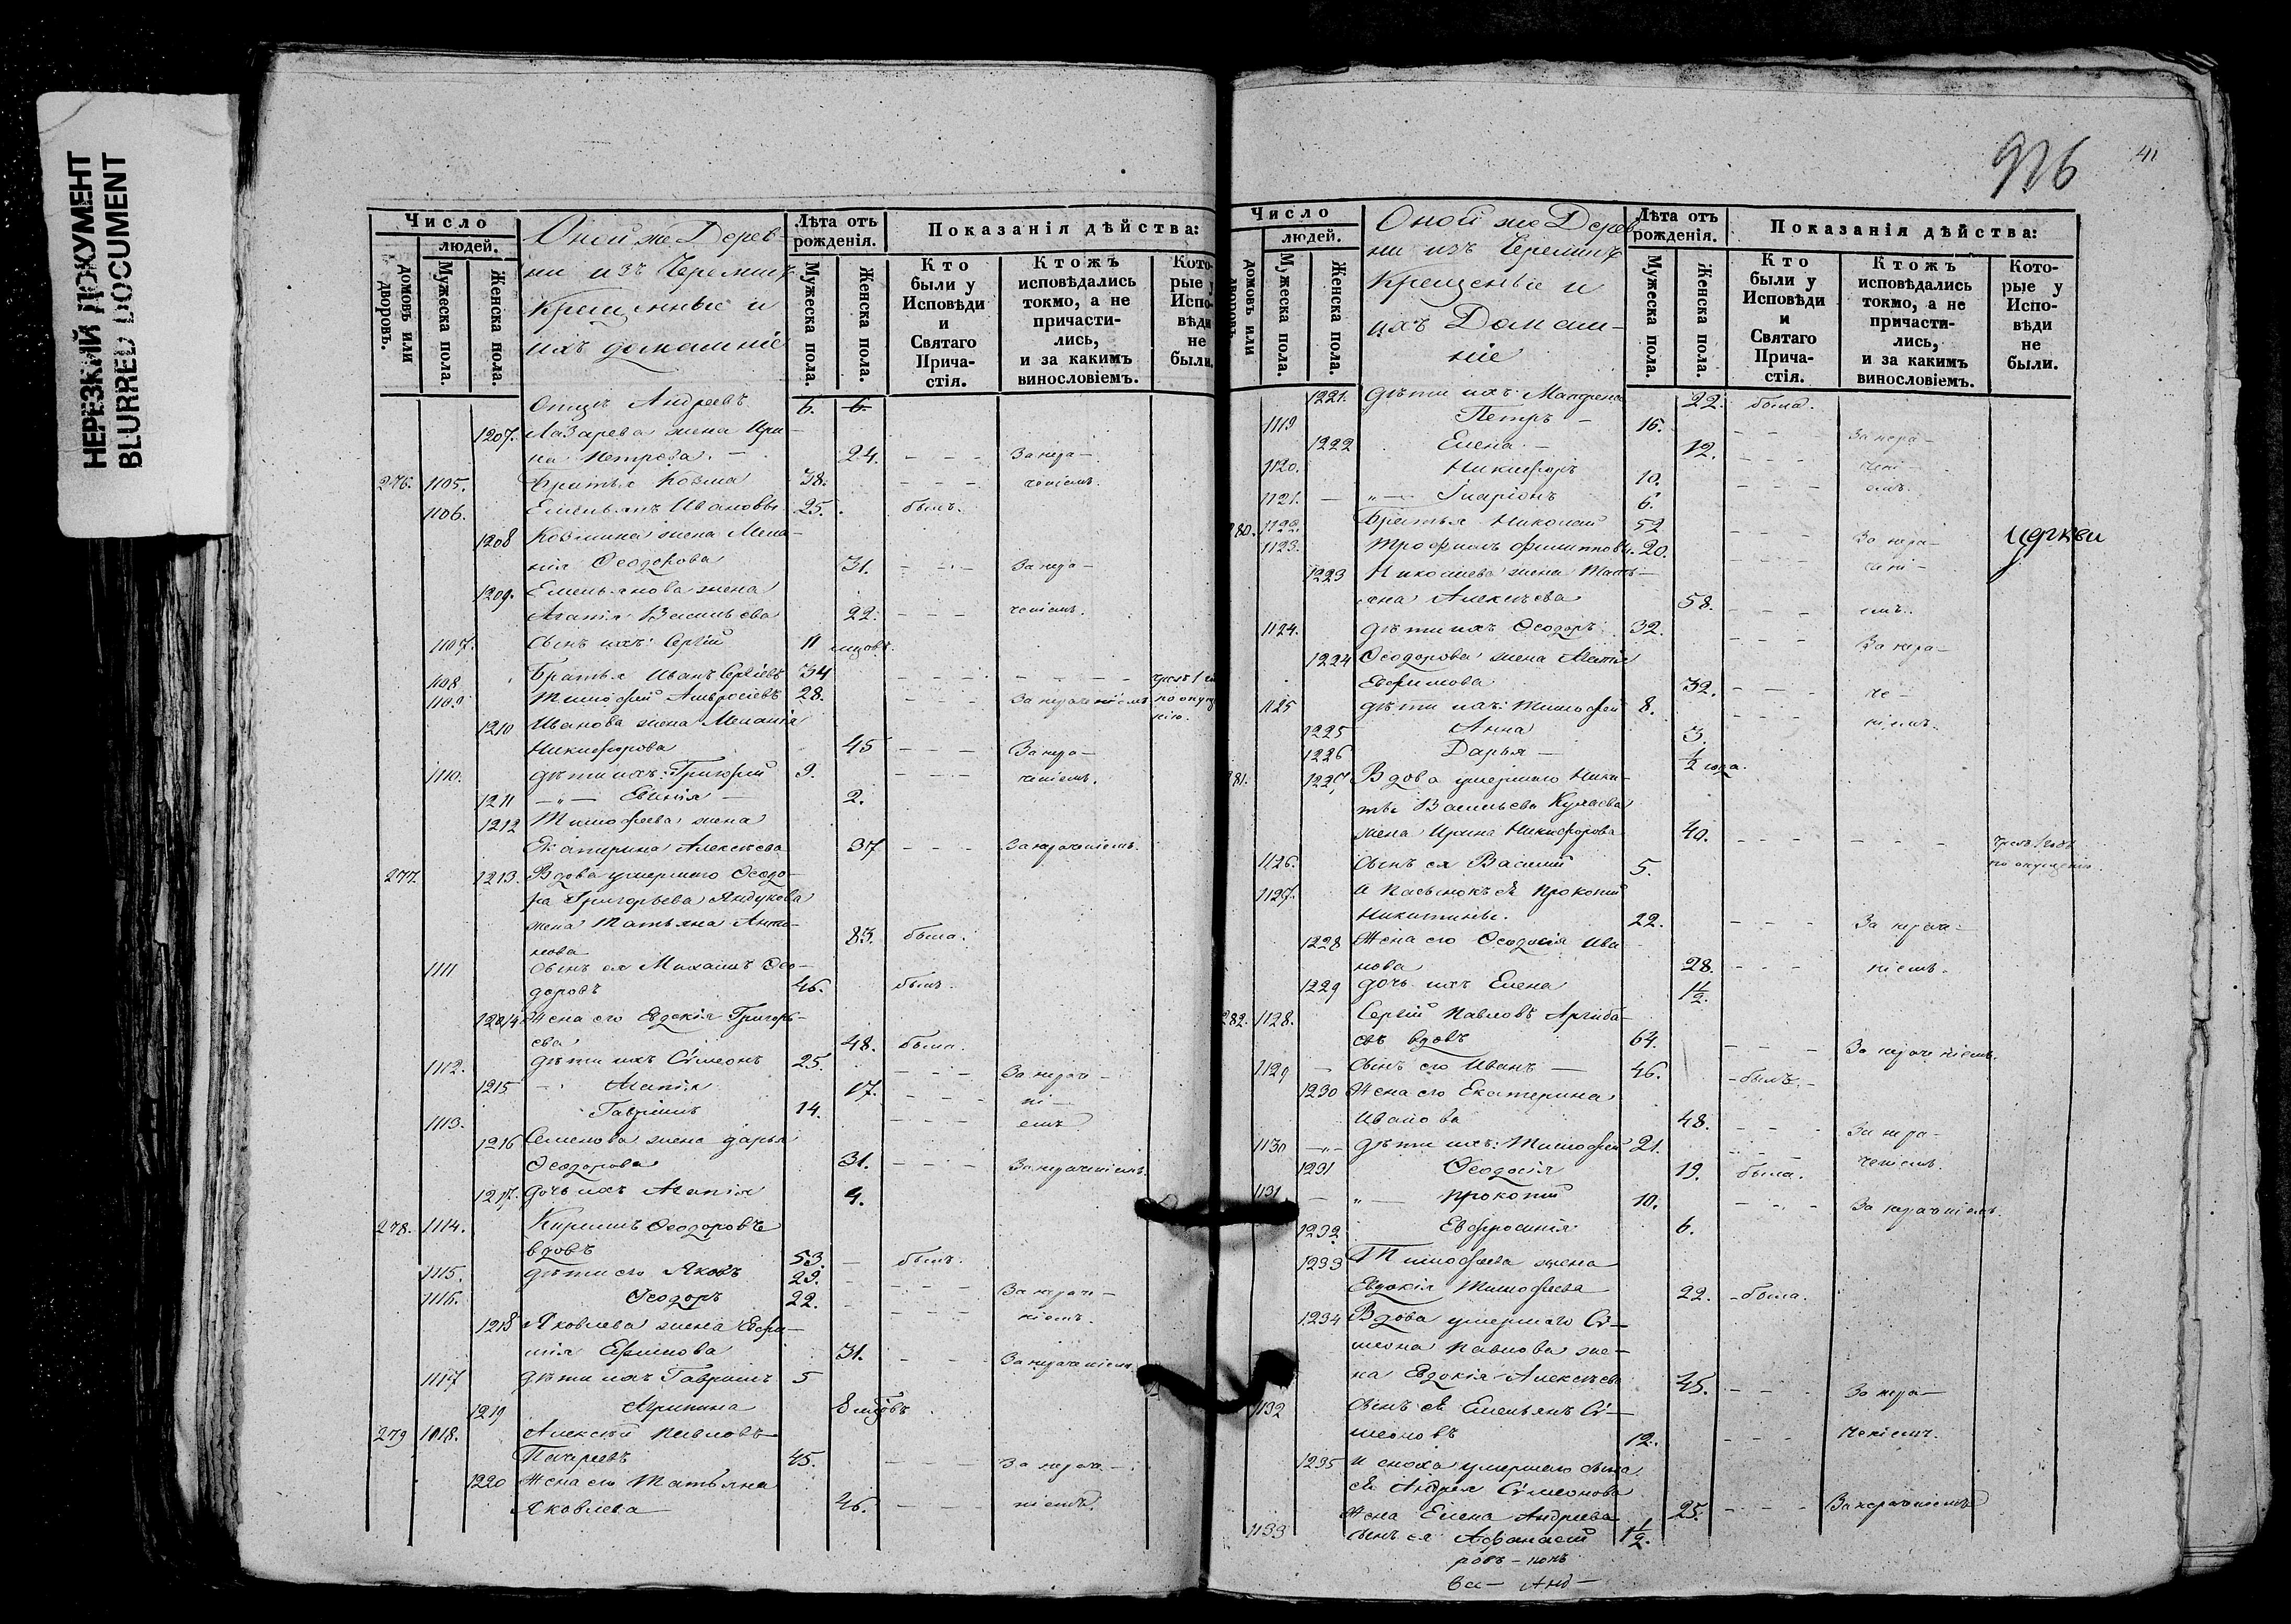 НЕРЕЗКИЙ ДОКУМЕНТ
BLURRED DOCUMENT
Число
людей.
домовъ или дворовъ.
Мужеска пола.
Женска пола.
Оной же Дерев-
ни изъ Черемисъ
Крещенные и
ихъ домашніе
Лѣта отъ рожденія.
Мужеска пола.
Женска пола.
Показанія дѣйства:
Кто были у Исповѣди и Святаго Прича-стія.
Ктожъ исповѣдались токмо, а не причасти-лись, и за какимъ винословіемъ.
Кото-рые у Испо-вѣди не были.
Андреевъ 6. 6.
1207. Лазарева жена Ири-
на Петрова. — 24. - - - За нера-
276. 1105. Братья Козма 38. - - - ченіемъ.
1106. Емельянъ Ивановы 25. былъ.
1208 Козмина жена Мела-
нія Ѳеодорова 31. - - - За нера-
1209. Емельянова жена
Агапія Васильева 22. - - - ченіемъ.
1107. Сынъ ихъ: Сергій 11 мцовъ.
1108 Братья Иванъ Сергіевъ 34 - - -
1109 Тимофей Амвросіевъ 28. За нераченіемъ по опущ
нію.
1210 Иванова жена Меланія
Никифорова 45 - - - За нера-
1110. дѣти ихъ: Григорій 9. - - - ченіемъ.
1211 -„- Евгенія — 2.
1212 Тимофеева жена
Екатерина Алексѣева 37 - - - За нераченіемъ.
277 1213. Вдова умершаго Ѳеодо-
ра Григорьева Яндукова
жена Татьяна Анти-
пова 83. была.
1111 Сынъ ея Михаилъ Ѳео-
доровъ 46. былъ.
1214 Жена его Евдокія Григорь-
ева 48. была.
1112. дѣти ихъ Симеонъ 25. - - - За нераче-
1215 Агапія 17. - - - ні-
1113. Гавріилъ 14. - - - емъ
1216 Семенова жена Дарья
Ѳеодорова 31. - - - За нераченіемъ.
1217. дочь ихъ Агапія 4.
278. 1114. Кирилъ Ѳеодоровъ
вдовъ 53. — былъ.
1115. дѣти его Яковъ 29. - - - За нераче-
1116. Ѳеодоръ 22. - - - ніемъ.
1218 Яковлева жена Евфи-
мія Ефимова 31. - - За нераченіемъ
1117 дѣти ихъ Гавріилъ 5
1219 Агрипина 8 мцовъ
279 1118. Алексѣй Павловъ
45. - - - За нераче-
1220 Жена его Татьяна
Яковлева 46. - - ніемъ.
926
41
Число
людей.
домовъ или дворовъ.
Мужеска пола.
Женска пола.
Оной же Дерев
ни изъ Черемисъ
Крещеные и
ихъ Домаш-
ніе
Лѣта отъ рожденія.
Мужеска пола.
Женска пола.
Показанія дѣйства:
Кто были у Исповѣди и Святаго Прича-стія.
Ктожъ исповѣдались токмо, а не причасти-лись, и за какимъ винословіемъ.
Кото-рые у Испо-вѣди не были.
1221. дѣти ихъ: Матрена 22. была.
1119 Петръ — 16. - - - За нера-
1222 Елена — 12. - - - чені
1120. Никифоръ 10. - - - емъ.
1121. — „ — Іларіонъ 6.
280. 1122. Братья Николай 52 - - - За нера-
1123. Трофимъ Филипповы. 20. - - - чені-
1223 Николаева жена Тать-
яна Алексѣева 58. - - - емъ.
1124. дѣти ихъ Ѳеодоръ 32. - - - За нера-
1224 Ѳеодорова жена
Евфимова 32. - - - че-
1125 дѣти ихъ: Тимофей 8. - - - ніемъ.
1225 Анна 3.
1226 Дарья — 1/2 года.
281. 1227. Вдова умершаго Ники-
ты Васильева Кулаева
жена Ирина Никифорова 40. - - -
по опущенію
1126. Сынъ ея Василій 5.
1127. и пасынокъ ея Прокопій
Никитины. 22. - - - За нераче-
1228 Жена его Ѳеодосія Ива
нова 28. - - - ніемъ.
1229 дочь ихъ Елена 1 1/2.
282. 1128. Сергій Павловъ
вдовъ 64. - - - За нераченіемъ.
1129 — Сынъ его Иванъ — 46. - былъ. -
1230 Жена его Екатерина
Иванова 48. - - - За нера-
1130 -„- дѣти ихъ: Тимофей 21. - - - ченіемъ.
1231 Ѳеодосія 19. была.
1131 — „ — Прокопій 10. - - - За нераченіемъ.
1232 Евфросинія 6.
1233 Тимофеева жена
Евдокія Тимофеева 22. - была.
1234 Вдова умершаго Си-
меона Павлова же-
на Евдокія Алексѣева 45. - - - За нера-
1132 Сынъ ея Емельянъ Си-
меоновъ 12. - - - ченіемъ.
1235 и сноха умершаго сына
ея Андрея Симеонова
Жена Елена Андреева 25. - - - За нераченіемъ
1133 Сынъ ея Афанасій 1 1/2.